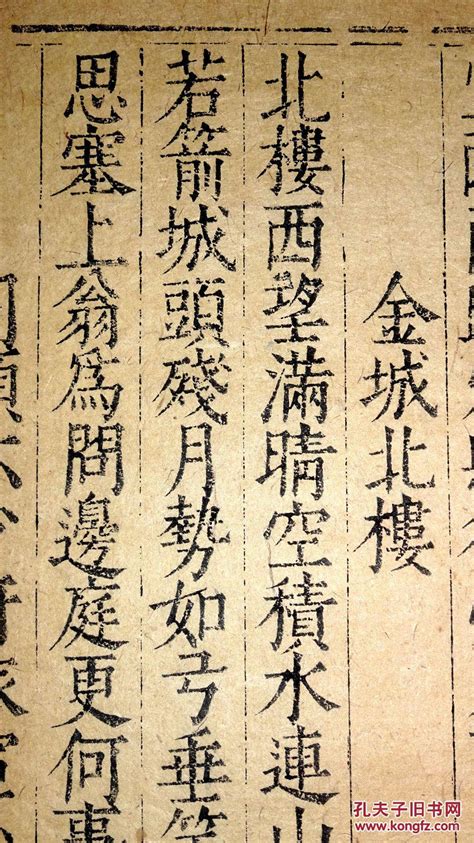 金城北樓
北樓西望滿晴空積水連山
若箭城頭殘月勢如弓垂
思塞上翁爲問邊庭更何事
孔夫子旧书网
www.kongfz.com